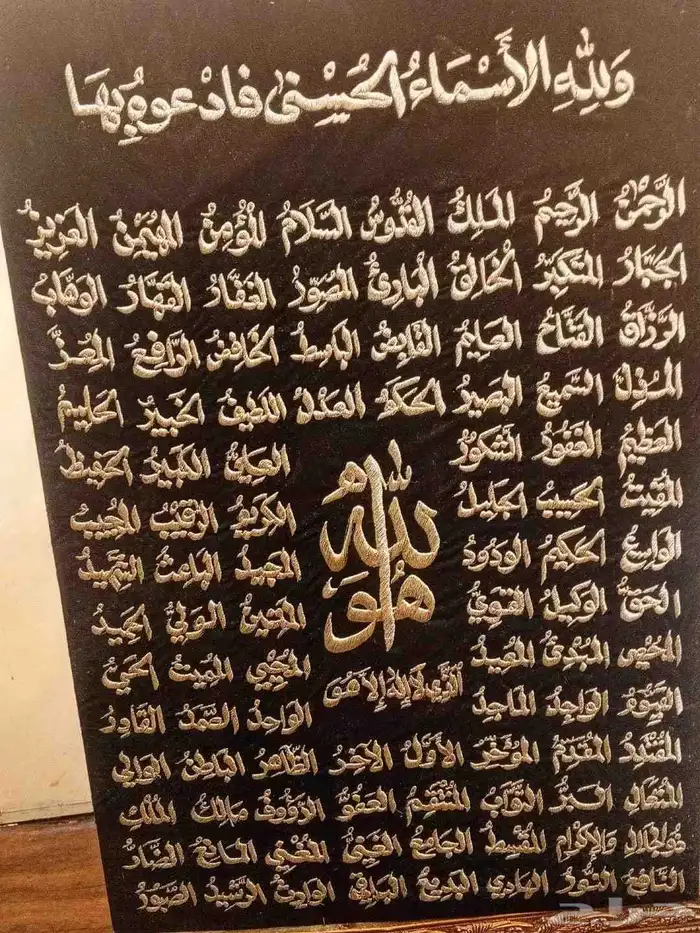 وَلِلّٰهِ الأَسْمَاءُ الحُسْنىٰ فادْعوهُ بِهَا
الرَّحْمٰنُ الرَّحِيمُ المَلِكُ القُدُّوسُ السَّلَامُ المُؤْمِنُ المُهَيْمِنُ العَزِيزُ
الجَبَّارُ المتَكَبِّرُ الخَالِقُ البَارِئُ المُصَوِّرُ الغَفَّارُ القَهَّارُ الوَهَّابُ
الرَّزَّاقُ الفَتَّاحُ العَلِيمُ القَابِضُ البَاسِطُ الخَافِضُ الرَّافِعُ المُعِزُّ
المُذِلُّ السَّمِيعُ البَصِيرُ الحَكَمُ العَدْلُ اللَّطِيفُ الخَبِيرُ الحَلِيمُ
العَظِيمُ الغَفُورُ الشَّكُورُ العَلِيُّ الكَبِيرُ الحَفِيظُ
المُقِيتُ الحَسِيبُ الجَلِيلُ الكَرِيمُ الرَّقِيبُ المُجِيبُ
الوَاسِعُ الحَكِيمُ الوَدُودُ المَجِيدُ البَاعِثُ الشَّهِيدُ
الحَقُّ الوَكِيلُ القَوِيُّ المَتِينُ الوَلِيُّ الحَمِيدُ
المُحْصِي المُبْدِئُ المُعِيدُ المُحْيِي المُمِيتُ الحَيُّ
القَيُّومُ الوَاجِدُ المَاجِدُ الوَاحِدُ الصَّمَدُ القَادِرُ
هُوَ اللّٰهُ
الَّذِي لَا إِلٰهَ إِلَّا هُوَ
المُقْتَدِرُ المُقَدِّمُ المُؤَخِّرُ الأَوَّلُ الآخِرُ الظَّاهِرُ البَاطِنُ الوَالِي
المُتَعَالِ البَرُّ التَّوَّابُ المُنْتَقِمُ العَفُوُّ الرَّؤُوفُ مَالِكُ المُلْكِ
ذُو الجَلَالِ وَالإِكْرَامِ المُقْسِطُ الجَامِعُ الغَنِيُّ المُغْنِي المَانِعُ الضَّارُّ
النَّافِعُ النُّورُ الهَادِي البَدِيعُ البَاقِي الوَارِثُ الرَّشِيدُ الصَّبُورُ